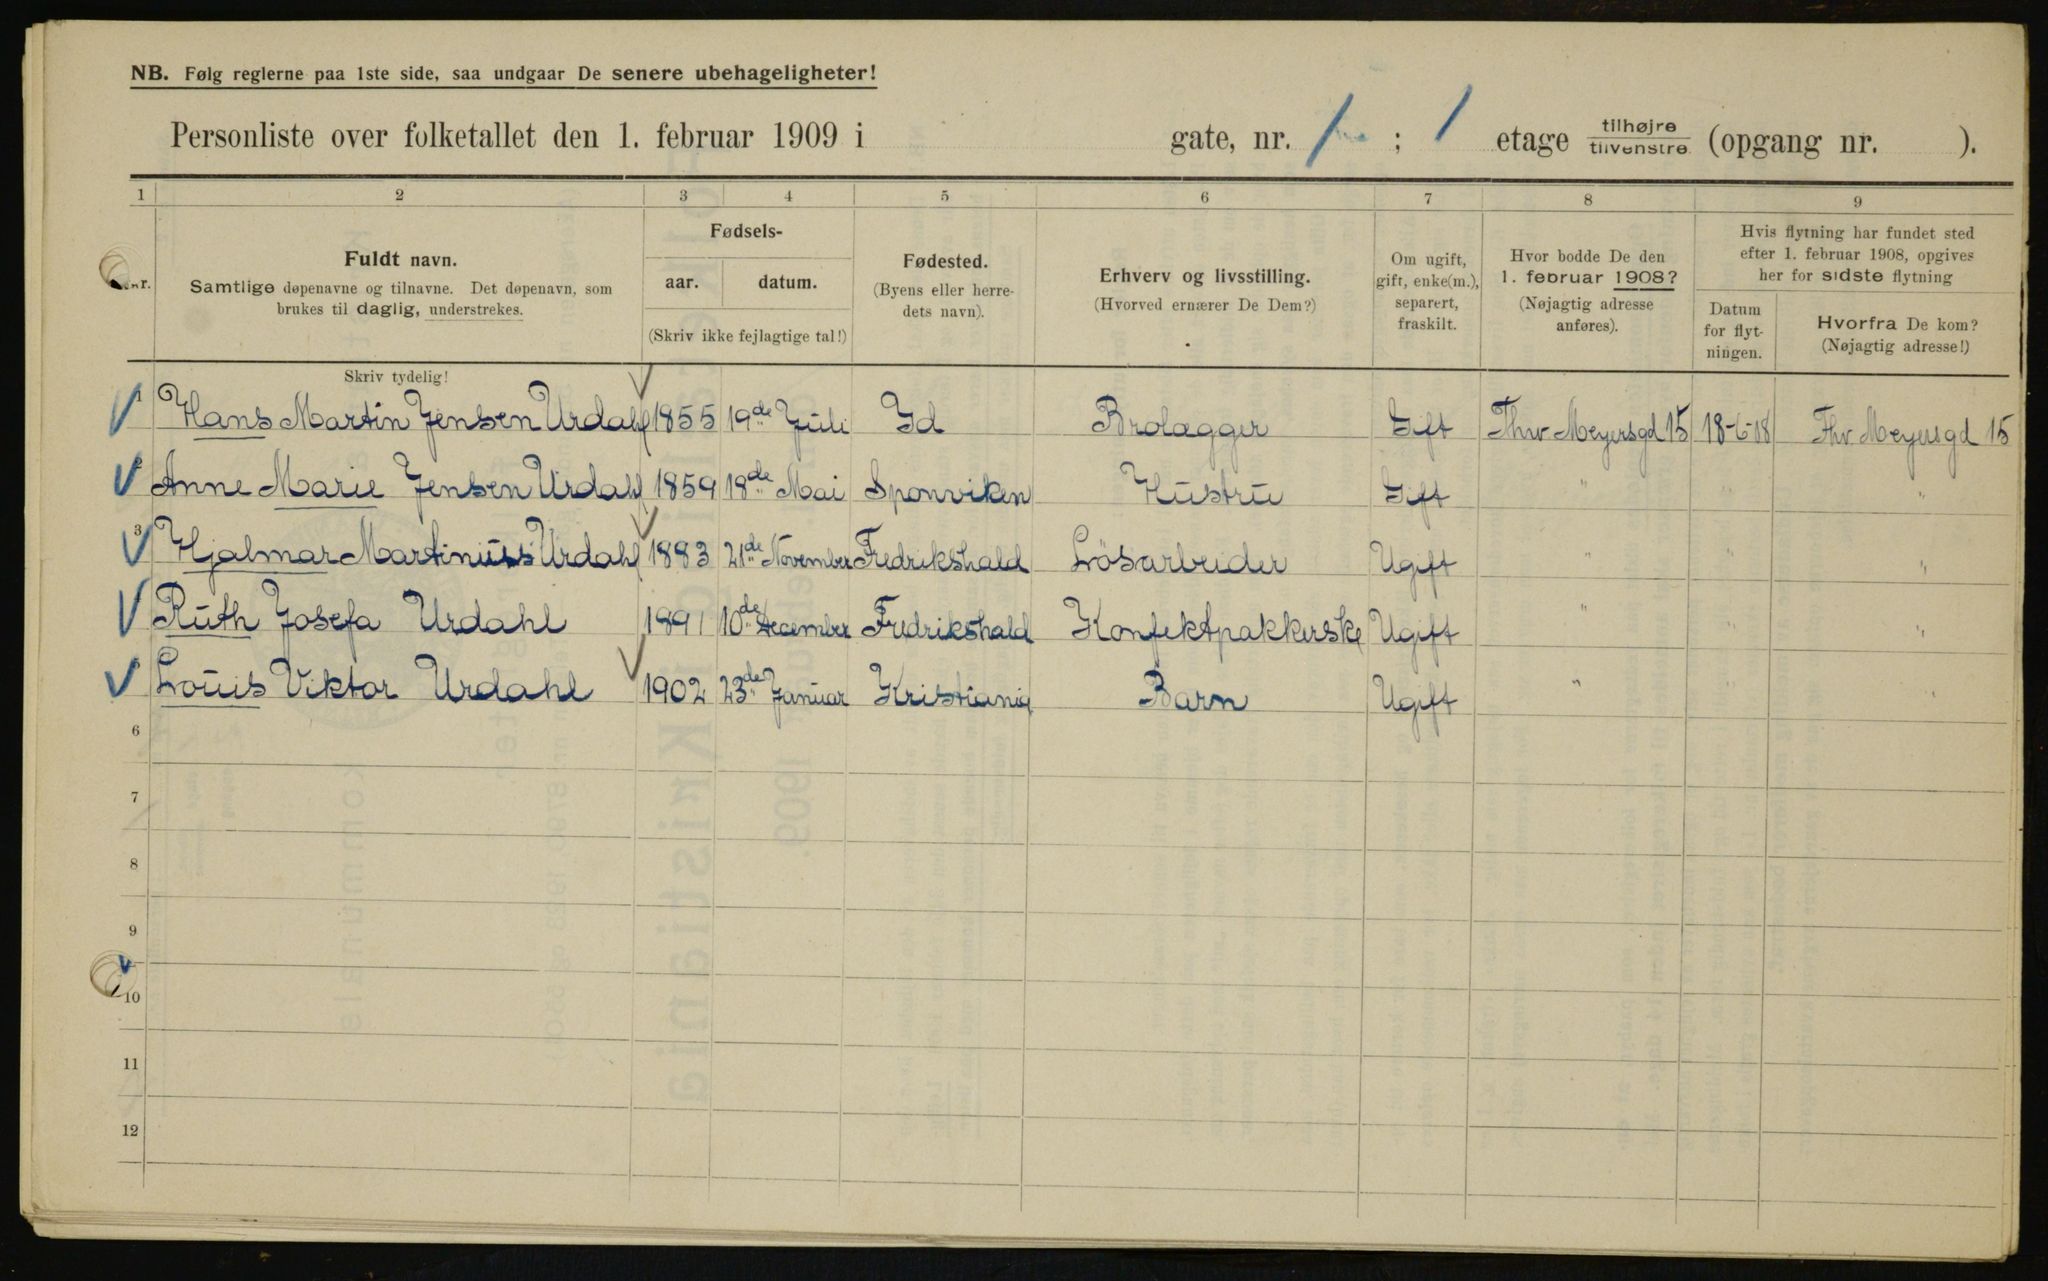 NB. Følg reglerne paa 1ste side, saa undgaar De senere ubehageligheter!
Personliste over folketallet den 1. februar 1909 i gate, nr. ; 1 etage tilhøjre tilvenstre (opgang nr. ).
1 2 3 4 5 6 7 8 9
Fuldt navn.
Samtlige døpenavne og tilnavne. Det døpenavn, som
brukes til daglig, understrekes.
Fødsels-
aar. datum.
(Skriv ikke fejlagtige tal!)
Fødested.
(Byens eller herre-
dets navn).
Erhverv og livsstilling.
(Hvorved ernærer De Dem?)
Om ugift,
gift, enke(m.),
separert,
fraskilt.
Hvor bodde De den
1. februar 1908?
(Nøjagtig adresse
anføres).
Hvis flytning har fundet sted
efter 1. februar 1908, opgives
her for sidste flytning
Datum
for flyt-
ningen.
Hvorfra De kom?
(Nøjagtig adresse!)
Skriv tydelig!
1 Hans Martin Jensen Urdahl 1855 19de Juli Id Brolægger Gift Thv Meyersgd 15 18-6-08 Thv. Meyersgd 15
2 Anne Marie Jensen Urdahl 1859 18de Mai Sponviken Hustru Gift " " "
3 Hjalmar Martinius Urdahl 1883 21de November Fredrikshald Løsarbeider Ugift " " "
Ruth Josefa Urdahl 1891 10de December Fredrikshald Konfektpakkerske Ugift " " "
5 Louis Viktor Urdahl 1902 23de Januar Kristiania Barn Ugift " " "
6
7
8
9
10
11
12